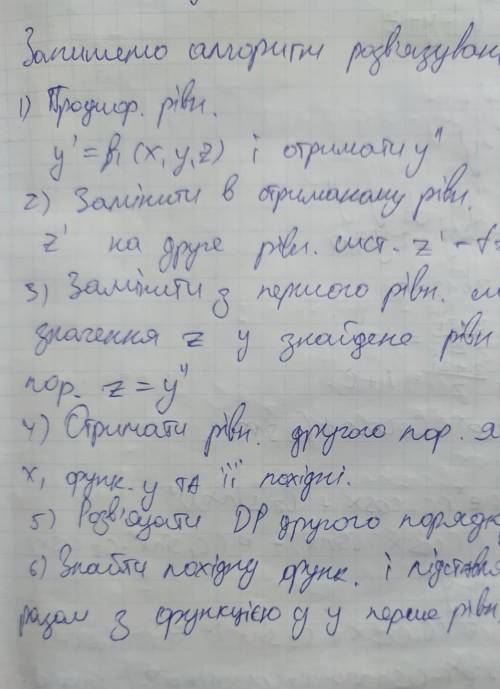 Запишемо алгоритм розв'язуван
1) Продиф. рівн.
y' = f₁ (x, y, z) і отримати y"
2) Замінити в отриманому рівн.
z' на друге рівн. сист. z' = f₂
3) Замінити з першого рівн.
значення z у знайдене рівн
пор. z = y"
4) Отримати рівн. другого пор. я
x, функ. y та її похідні.
5) Розв'язати DР другого порядк
6) Знайти похідну функ. і підстав
разом з функцією y у перше рівн.